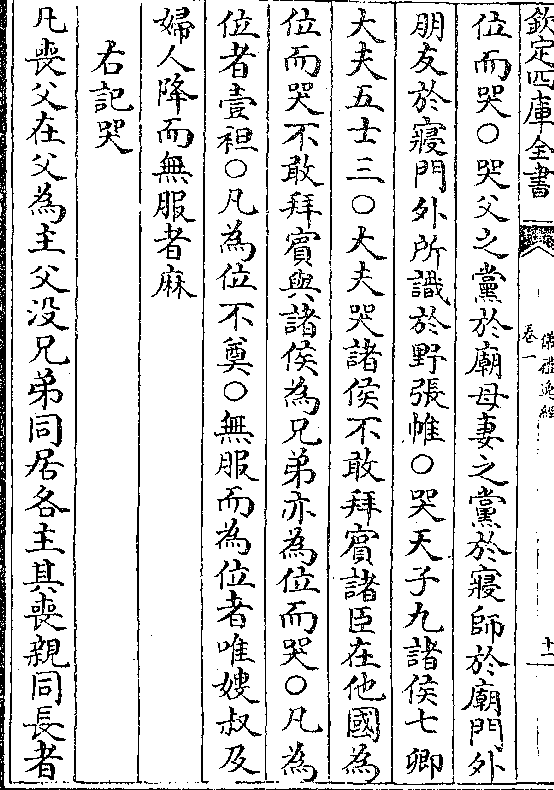 欽定四庫全書
儀禮逸經
卷一
十二
位而哭○哭父之黨於廟母妻之黨於寢師於廟門外
朋友於寢門外所識於野張帷○哭天子九諸侯七卿
大夫五士三○大夫哭諸侯不敢拜賓諸臣在他國為
位而哭不敢拜賓與諸侯為兄弟亦為位而哭○凡為
位者壹袒○凡為位不奠○無服而為位者唯嫂叔及
婦人降而無服者麻
右記哭
凡喪父在父為主父没兄弟同居各主其喪親同長者